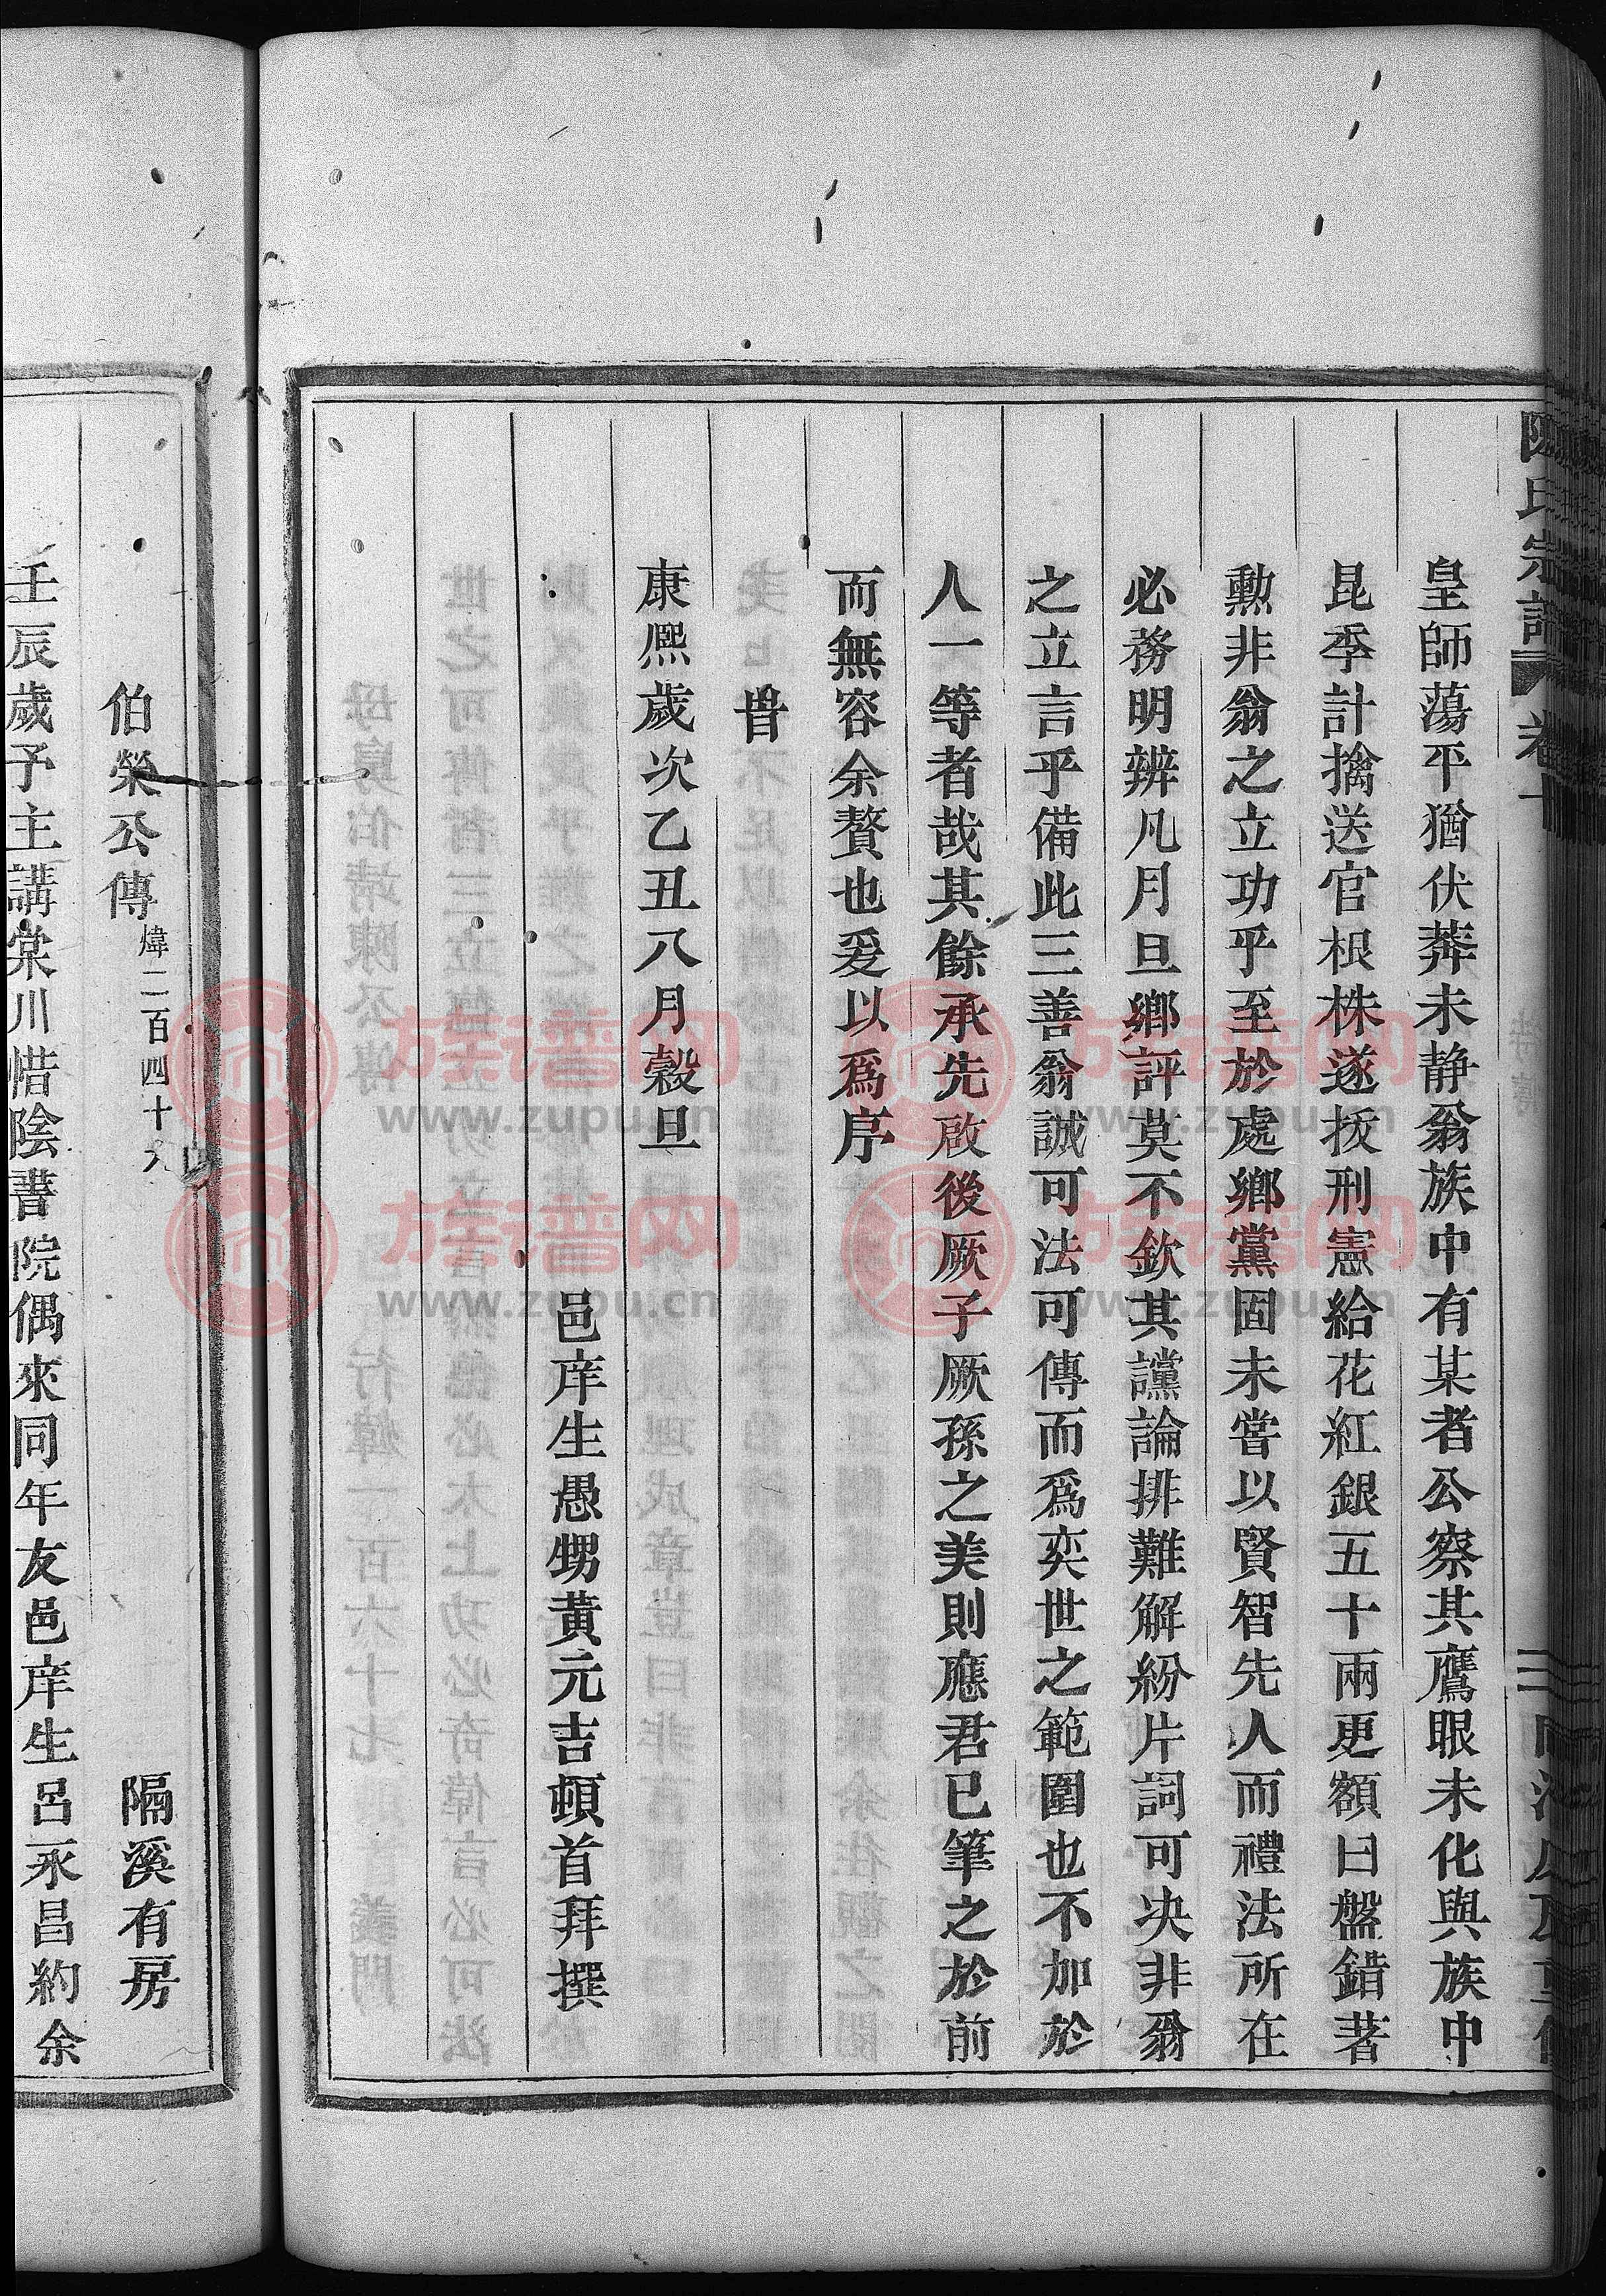 氏宗譜 卷十
皇師蕩平猶伏莽未静翁族中有某者公察其鷹眼未化與族中
昆季計擒送官根株遂拔刑憲給花紅銀五十兩更額曰盤錯著
勲非翁之立功乎至於處鄉黨固未嘗以賢智先人而禮法所在
必務明辨凡月旦鄉評莫不欽其讜論排難解紛片詞可决非翁
之立言乎備此三善翁誠可法可傳而爲奕世之範圍也不加於
人一等者哉其餘承先啟後厥子厥孫之美則應君已筆之於前
而無容余贅也爰以爲序
旹
康熈歲次乙丑八月穀旦
邑庠生愚甥黄元吉頓首拜撰
伯榮公傳 煒二百四十 隔溪有房
壬辰歲予主講棠川惜陰書院偶來同年友邑庠生呂永昌約余
族谱网
www.zupu.cn
族谱网
www.zupu.cn
族谱网
www.zupu.cn
族谱网
www.zupu.cn